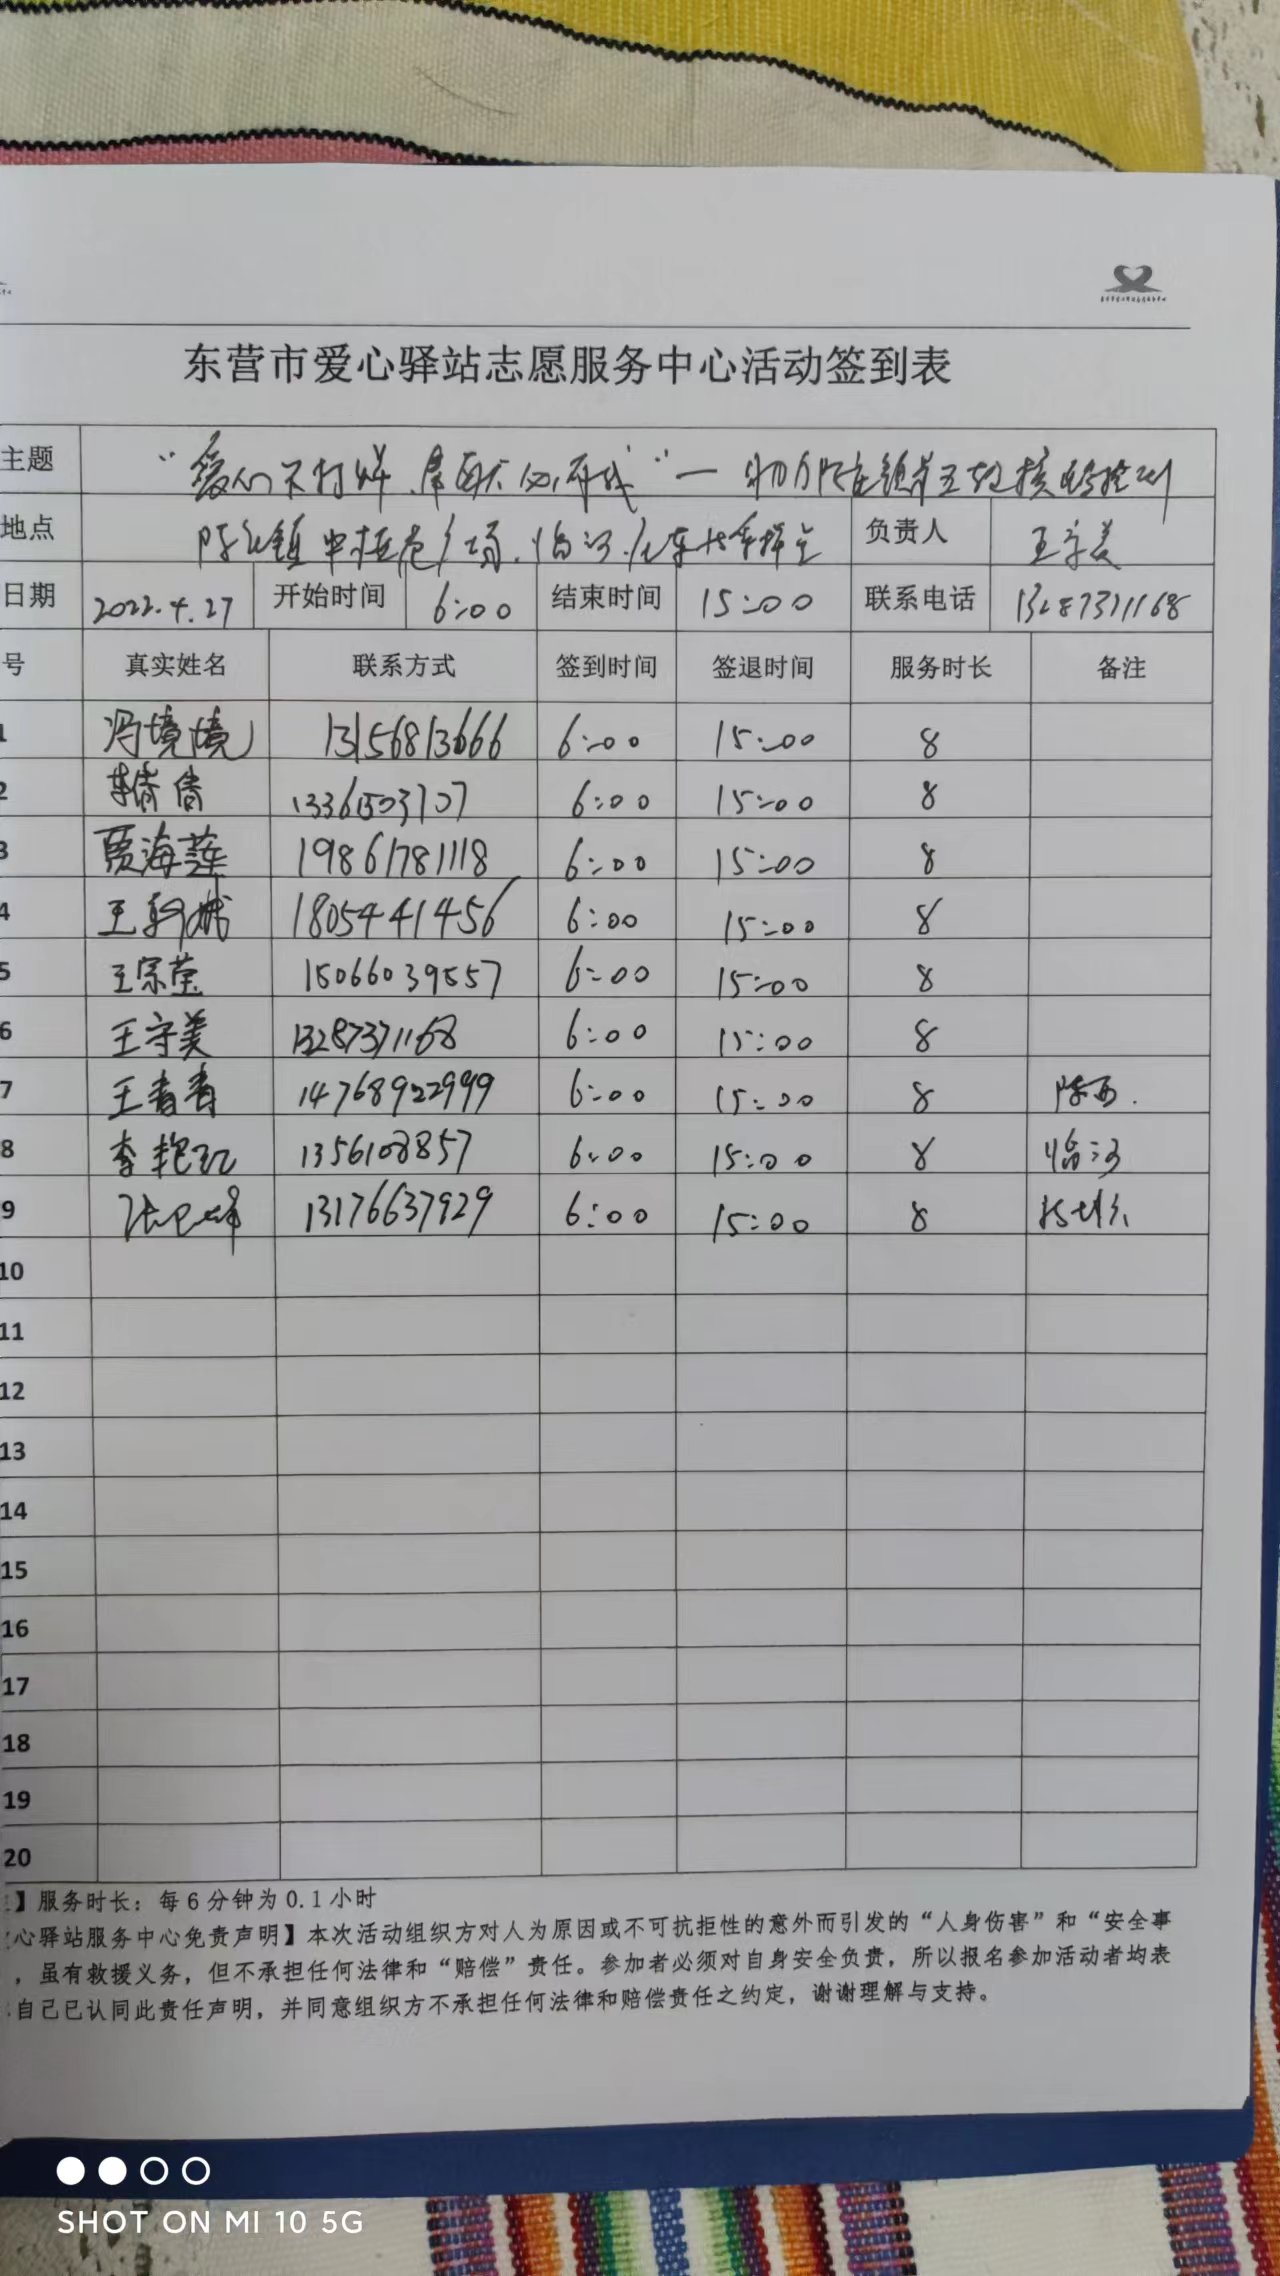 东营市爱心驿站志愿服务中心活动签到表
主题 "爱心不打烊
地点 负责人 王守美
日期 2022.4.27 开始时间 6:00 结束时间 15:00 联系电话 13287371168
号 真实姓名 联系方式 签到时间 签退时间 服务时长 备注
1 冯境境 13156813666 6:00 15:00 8
2 倩倩 13361503707 6:00 15:00 8
3 贾海莲 19861781118 6:00 15:00 8
4 王 18054441456 6:00 15:00 8
5 王宗莹 15066039557 6:00 15:00 8
6 王守美 13287371168 6:00 15:00 8
7 王青青 14768922999 6:00 15:00 8 陈西.
8 李艳红 6:00 15:00 8 临河
9 张 13176637929 6:00 15:00 8
10
11
12
13
14
15
16
17
18
19
20
】服务时长：每6分钟为0.1小时
心驿站服务中心免责声明】本次活动组织方对人为原因或不可抗拒性的意外而引发的“人身伤害”和“安全事
，虽有救援义务，但不承担任何法律和“赔偿”责任。参加者必须对自身安全负责，所以报名参加活动者均表
自己已认同此责任声明，并同意组织方不承担任何法律和赔偿责任之约定，谢谢理解与支持。
SHOT ON MI 10 5G